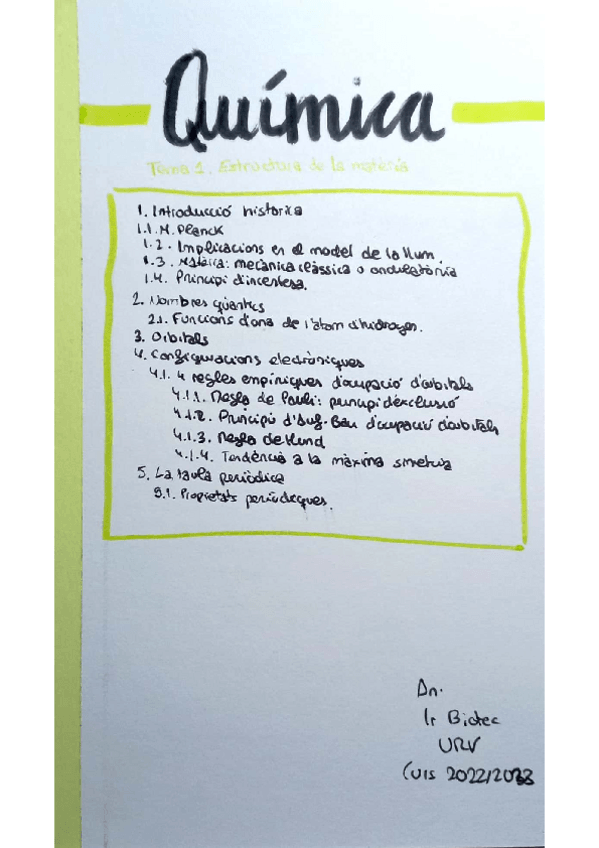 Química
Tema 1. Estructura de la matèria
1. Introducció històrica
1.1. M. Planck
1.2. Implicacions en el model de la llum.
1.3. Matèria: mecànica clàssica o ondulatòria
1.4. Principi d'incertesa.
2. Nombres quàntics
2.1. Funcions d'ona de l'àtom d'hidrogen.
3. Orbitals
4. Configuracions electròniques
4.1. 4 regles empíriques d'ocupació d'orbitals
4.1.1. Regla de Pauli: principi d'exclusió
4.1.2. Principi d'Auf-Bau d'ocupació d'orbitals
4.1.3. Regla de Hund
4.1.4. Tendència a la màxima simetria
5. La taula periòdica
5.1. Propietats periòdiques.
1r Biotec
URV
Curs 2022/2023